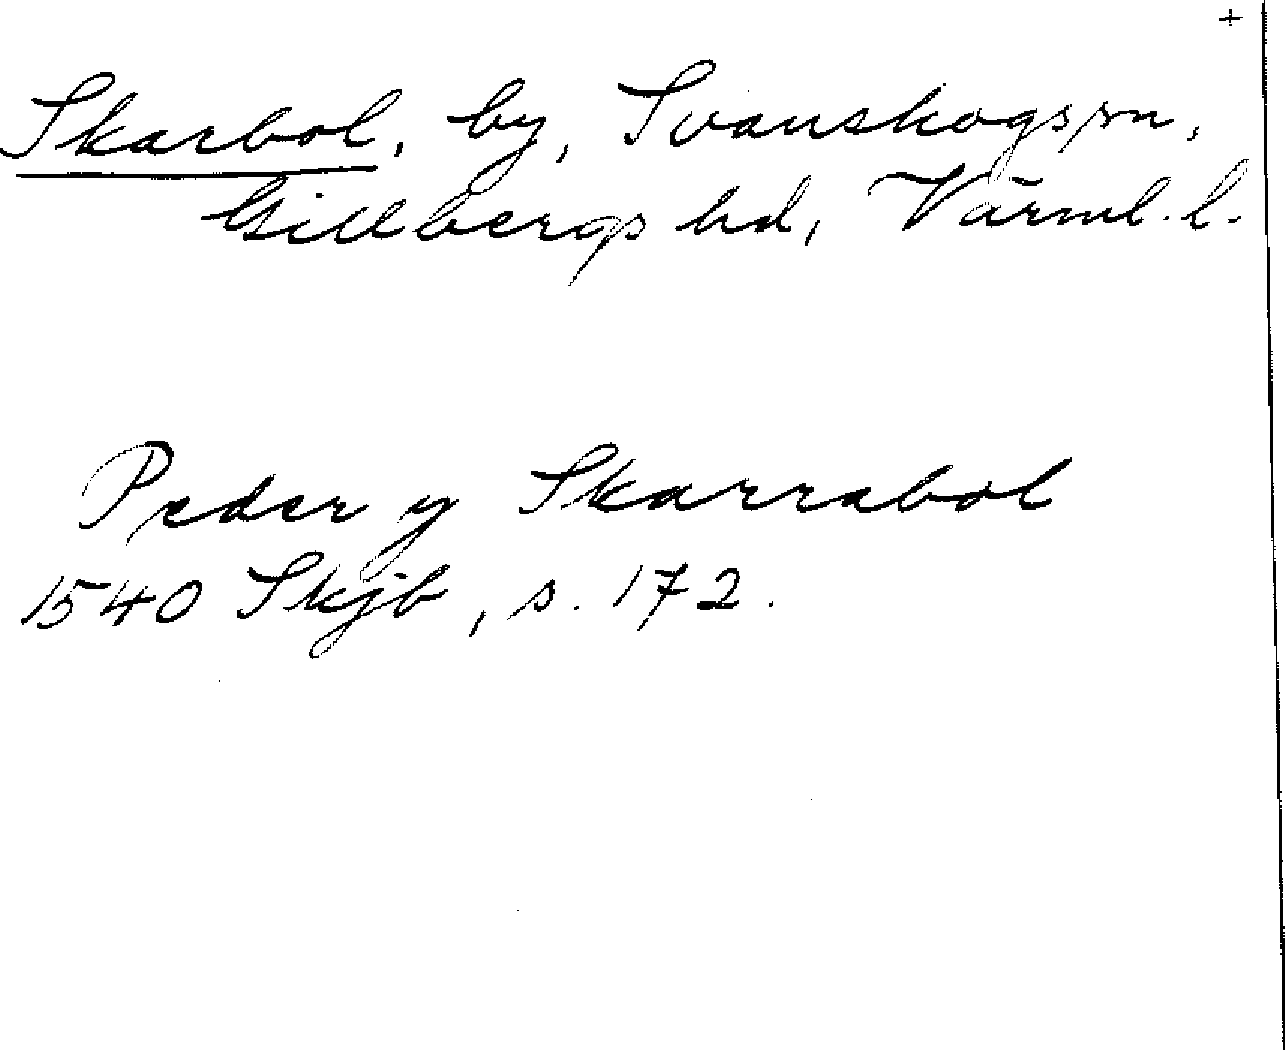 +
Skarbol, by, Svanskogs sn,
Gillbergs hd, Värml. l.
Peder y Skarrabol
1540 Skjb, s. 172.